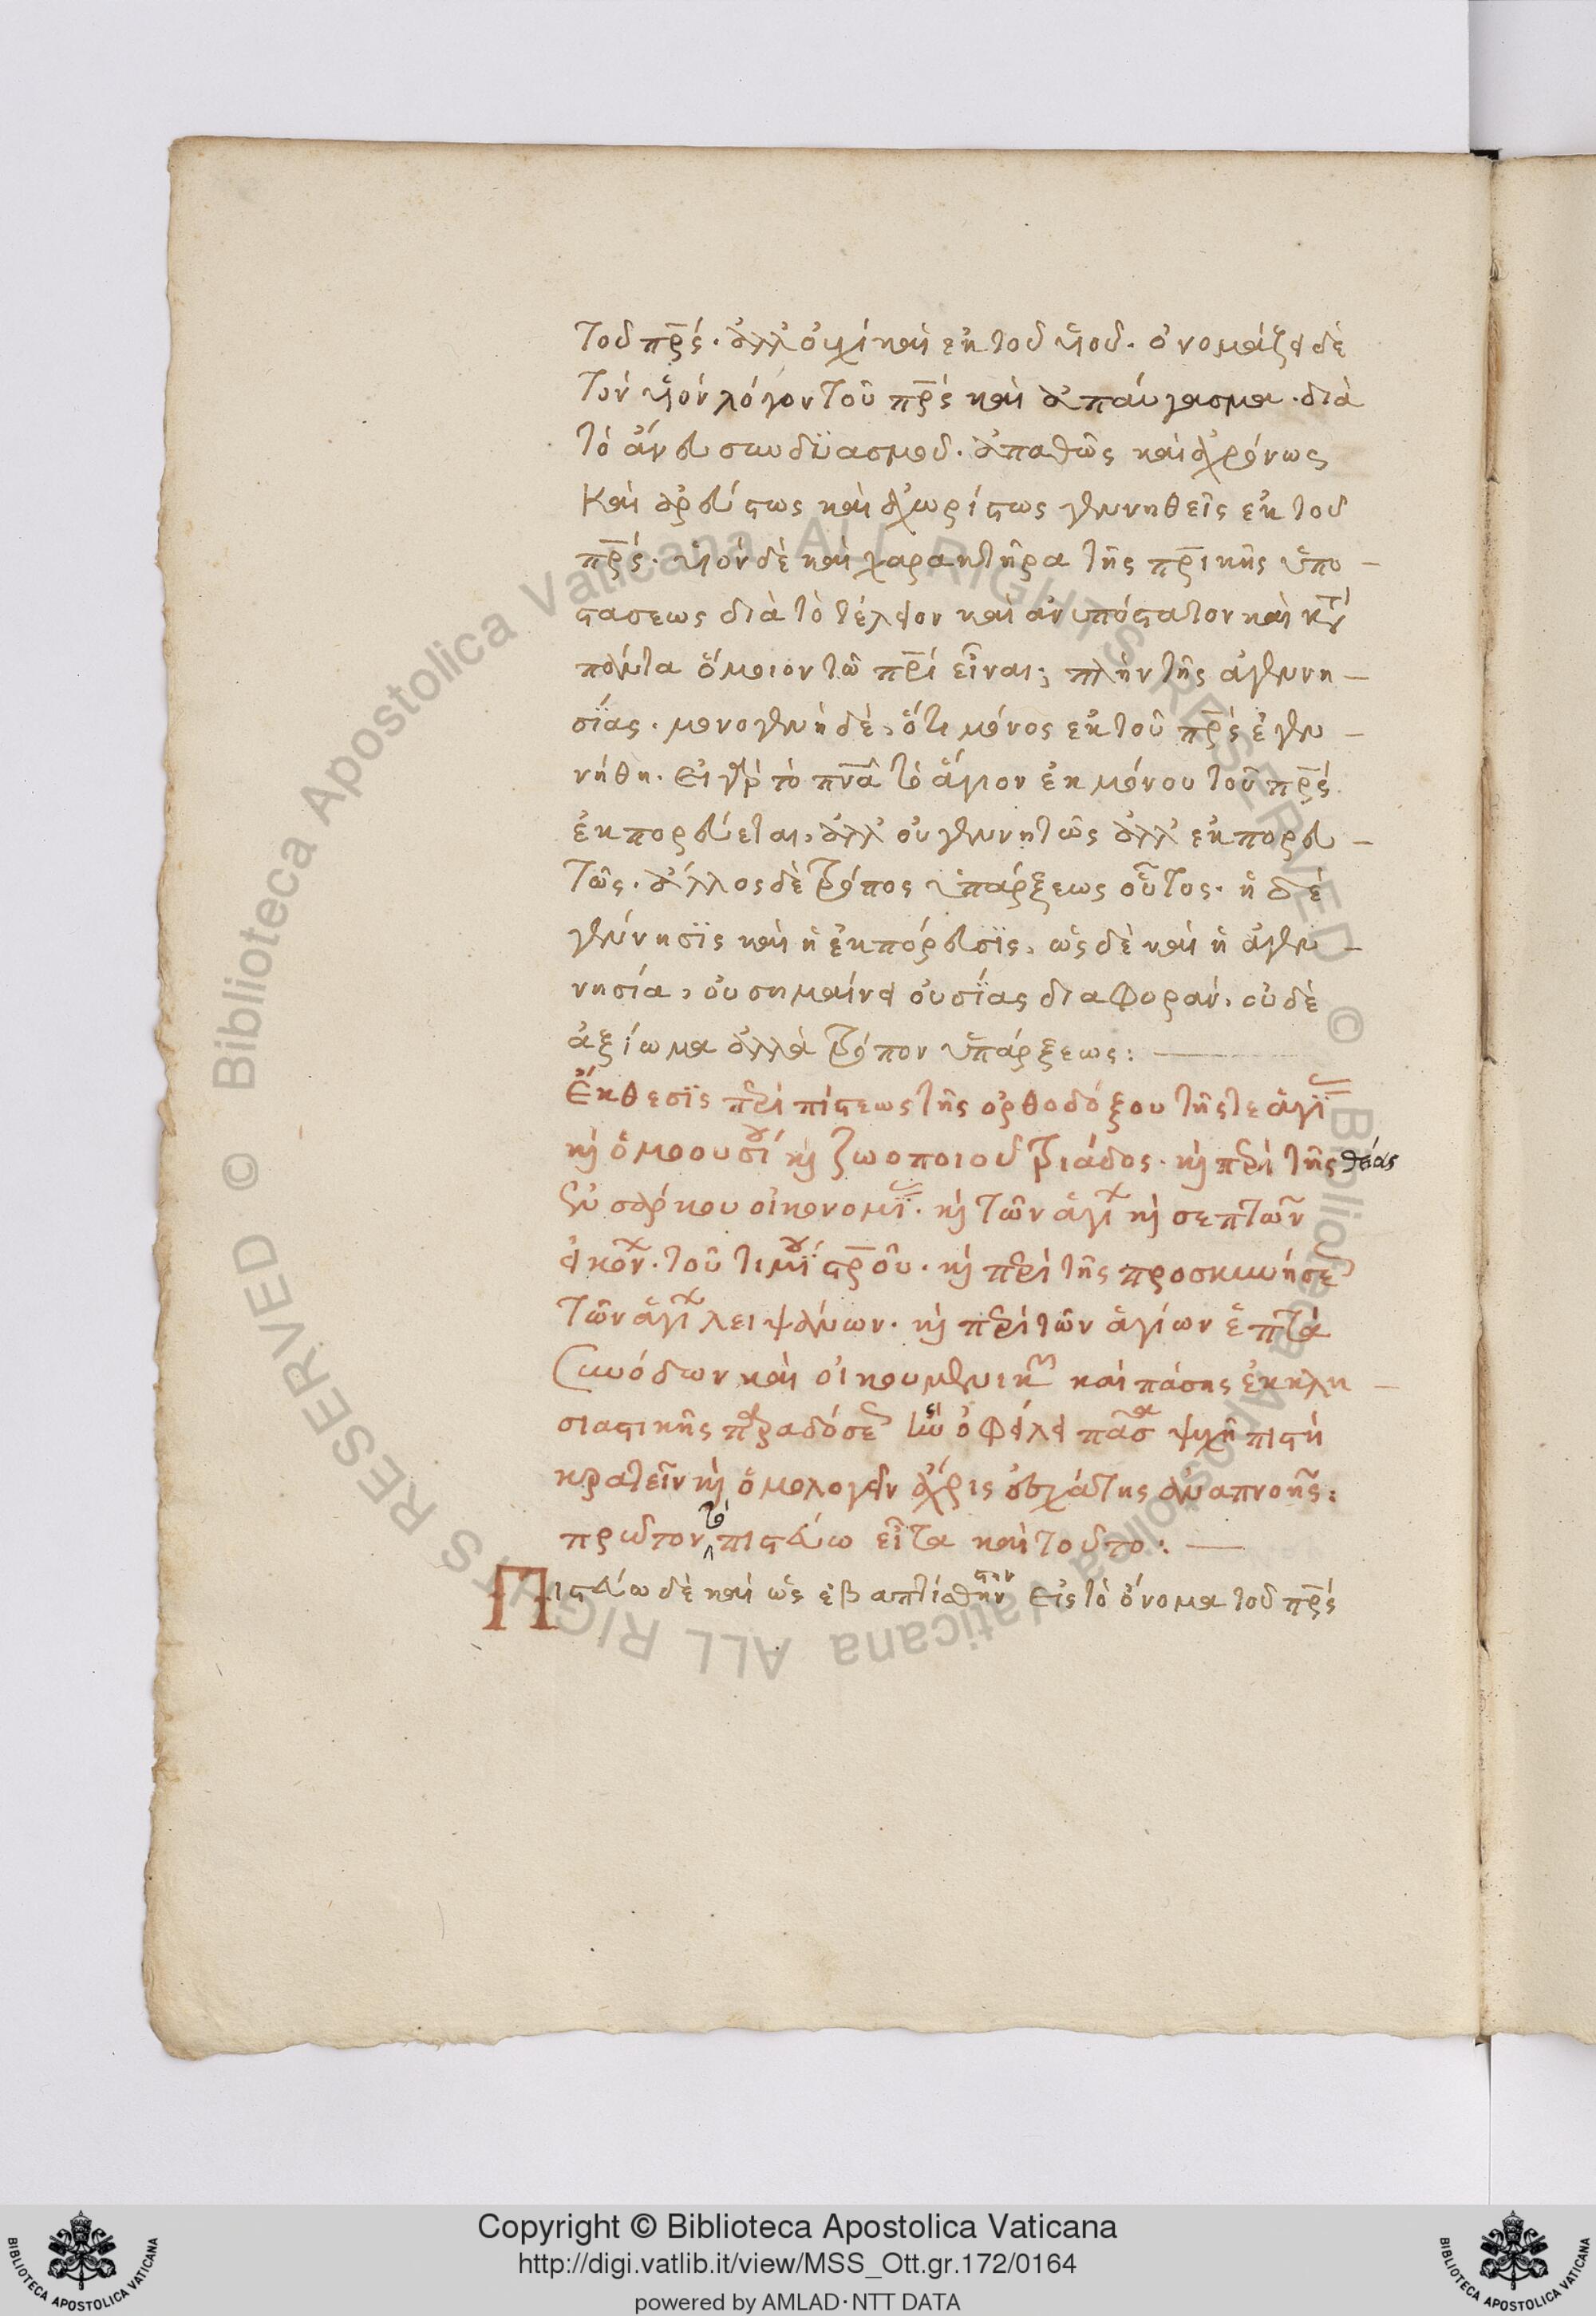 τοῦ πρ̅ς. ἀλλ' οὐχὶ καὶ ἐκ τοῦ υἱοῦ. ὀνομάζει δὲ
τὸν υἱὸν λόγον τοῦ πρ̅ς καὶ ἀπαύγασμα. διὰ
τὸ ἄνευ συνδϋασμοῦ. ἀπαθῶς καὶ ἀχρόνως
καὶ ἀρεύστως καὶ ἀχωρίστως γεννηθεὶς ἐκ τοῦ
πρ̅ς. υἱὸν δὲ καὶ χαρακτῆρα τῆς πρ̅ικῆς ὑπο-
στάσεως διὰ τὸ τέλειον καὶ ἀνυπόστατον καὶ κατὰ
πάντα ὅμοιον τῶ πρ̅ι εἶναι; πλὴν τῆς ἀγεννη-
σίας. μονογενῆ δὲ, ὅτι μόνος ἐκ τοῦ πρ̅ς ἐγεν-
νήθη. εἰ γὰρ τὸ πν̅α τὸ ἅγιον ἐκ μόνου τοῦ πρ̅ς
ἐκπορεύεται, ἀλλ' οὐ γεννητῶς ἀλλ' ἐκπορευ-
τῶς. ἄλλος δὲ τρόπος ὑπάρξεως οὗτος. ἡ δὲ
γέννησϊς καὶ ἡ ἐκπόρευσϊς, ὡς δὲ καὶ ἡ ἀγεν-
νησία, οὐ σημαίνει οὐσίας διαφορὰν, οὐδὲ
ἀξίωμα ἀλλὰ τρόπον ὑπάρξεως:
Ἔκθεσϊς περὶ πίστεως τῆς ὀρθοδόξου τῆς τε ἁγί
κ̀ ὁμοουσί κ̀ ζωοποιοῦ τριάδος. κ̀ περὶ τῆς θείας
ἐνσάρκου οἰκονομί. κ̀ τῶν ἁγί κ̀ σεπτῶν
εἰκόν. τοῦ τιμί στρ̅οῦ. κ̀ περὶ τῆς προσκυνήσε
τῶν ἁγί λειψάνων. κ̀ περὶ τῶν ἁγίων ἑπτὰ
συνόδων καὶ οἰκουμενικ καὶ πάσης ἐκκλη-
σιαστικῆς παραδόσε ὀφείλει πᾶσα ψχὴ πιστὴ
κρατεῖν κ̀ ὁμολογεῖν ἄχρις ἐσχάτης ἀναπνοῆς:
πρῶτον τὸ πιστεύω εἶτα καὶ τοῦτο:
Πιστεύω δὲ καὶ ὡς ἐβαπτίσθην εἰς τὸ ὄνομα τοῦ πρ̅ς
Copyright © Biblioteca Apostolica Vaticana
http://digi.vatlib.it/view/MSS_Ott.gr.172/0164
powered by AMLAD·NTT DATA
BIBLIOTECA APOSTOLICA VATICANA
BIBLIOTECA APOSTOLICA VATICANA
© Biblioteca Apostolica Vaticana ALL RIGHTS RESERVED © Biblioteca Apostolica Vaticana ALL RIGHTS RESERVED